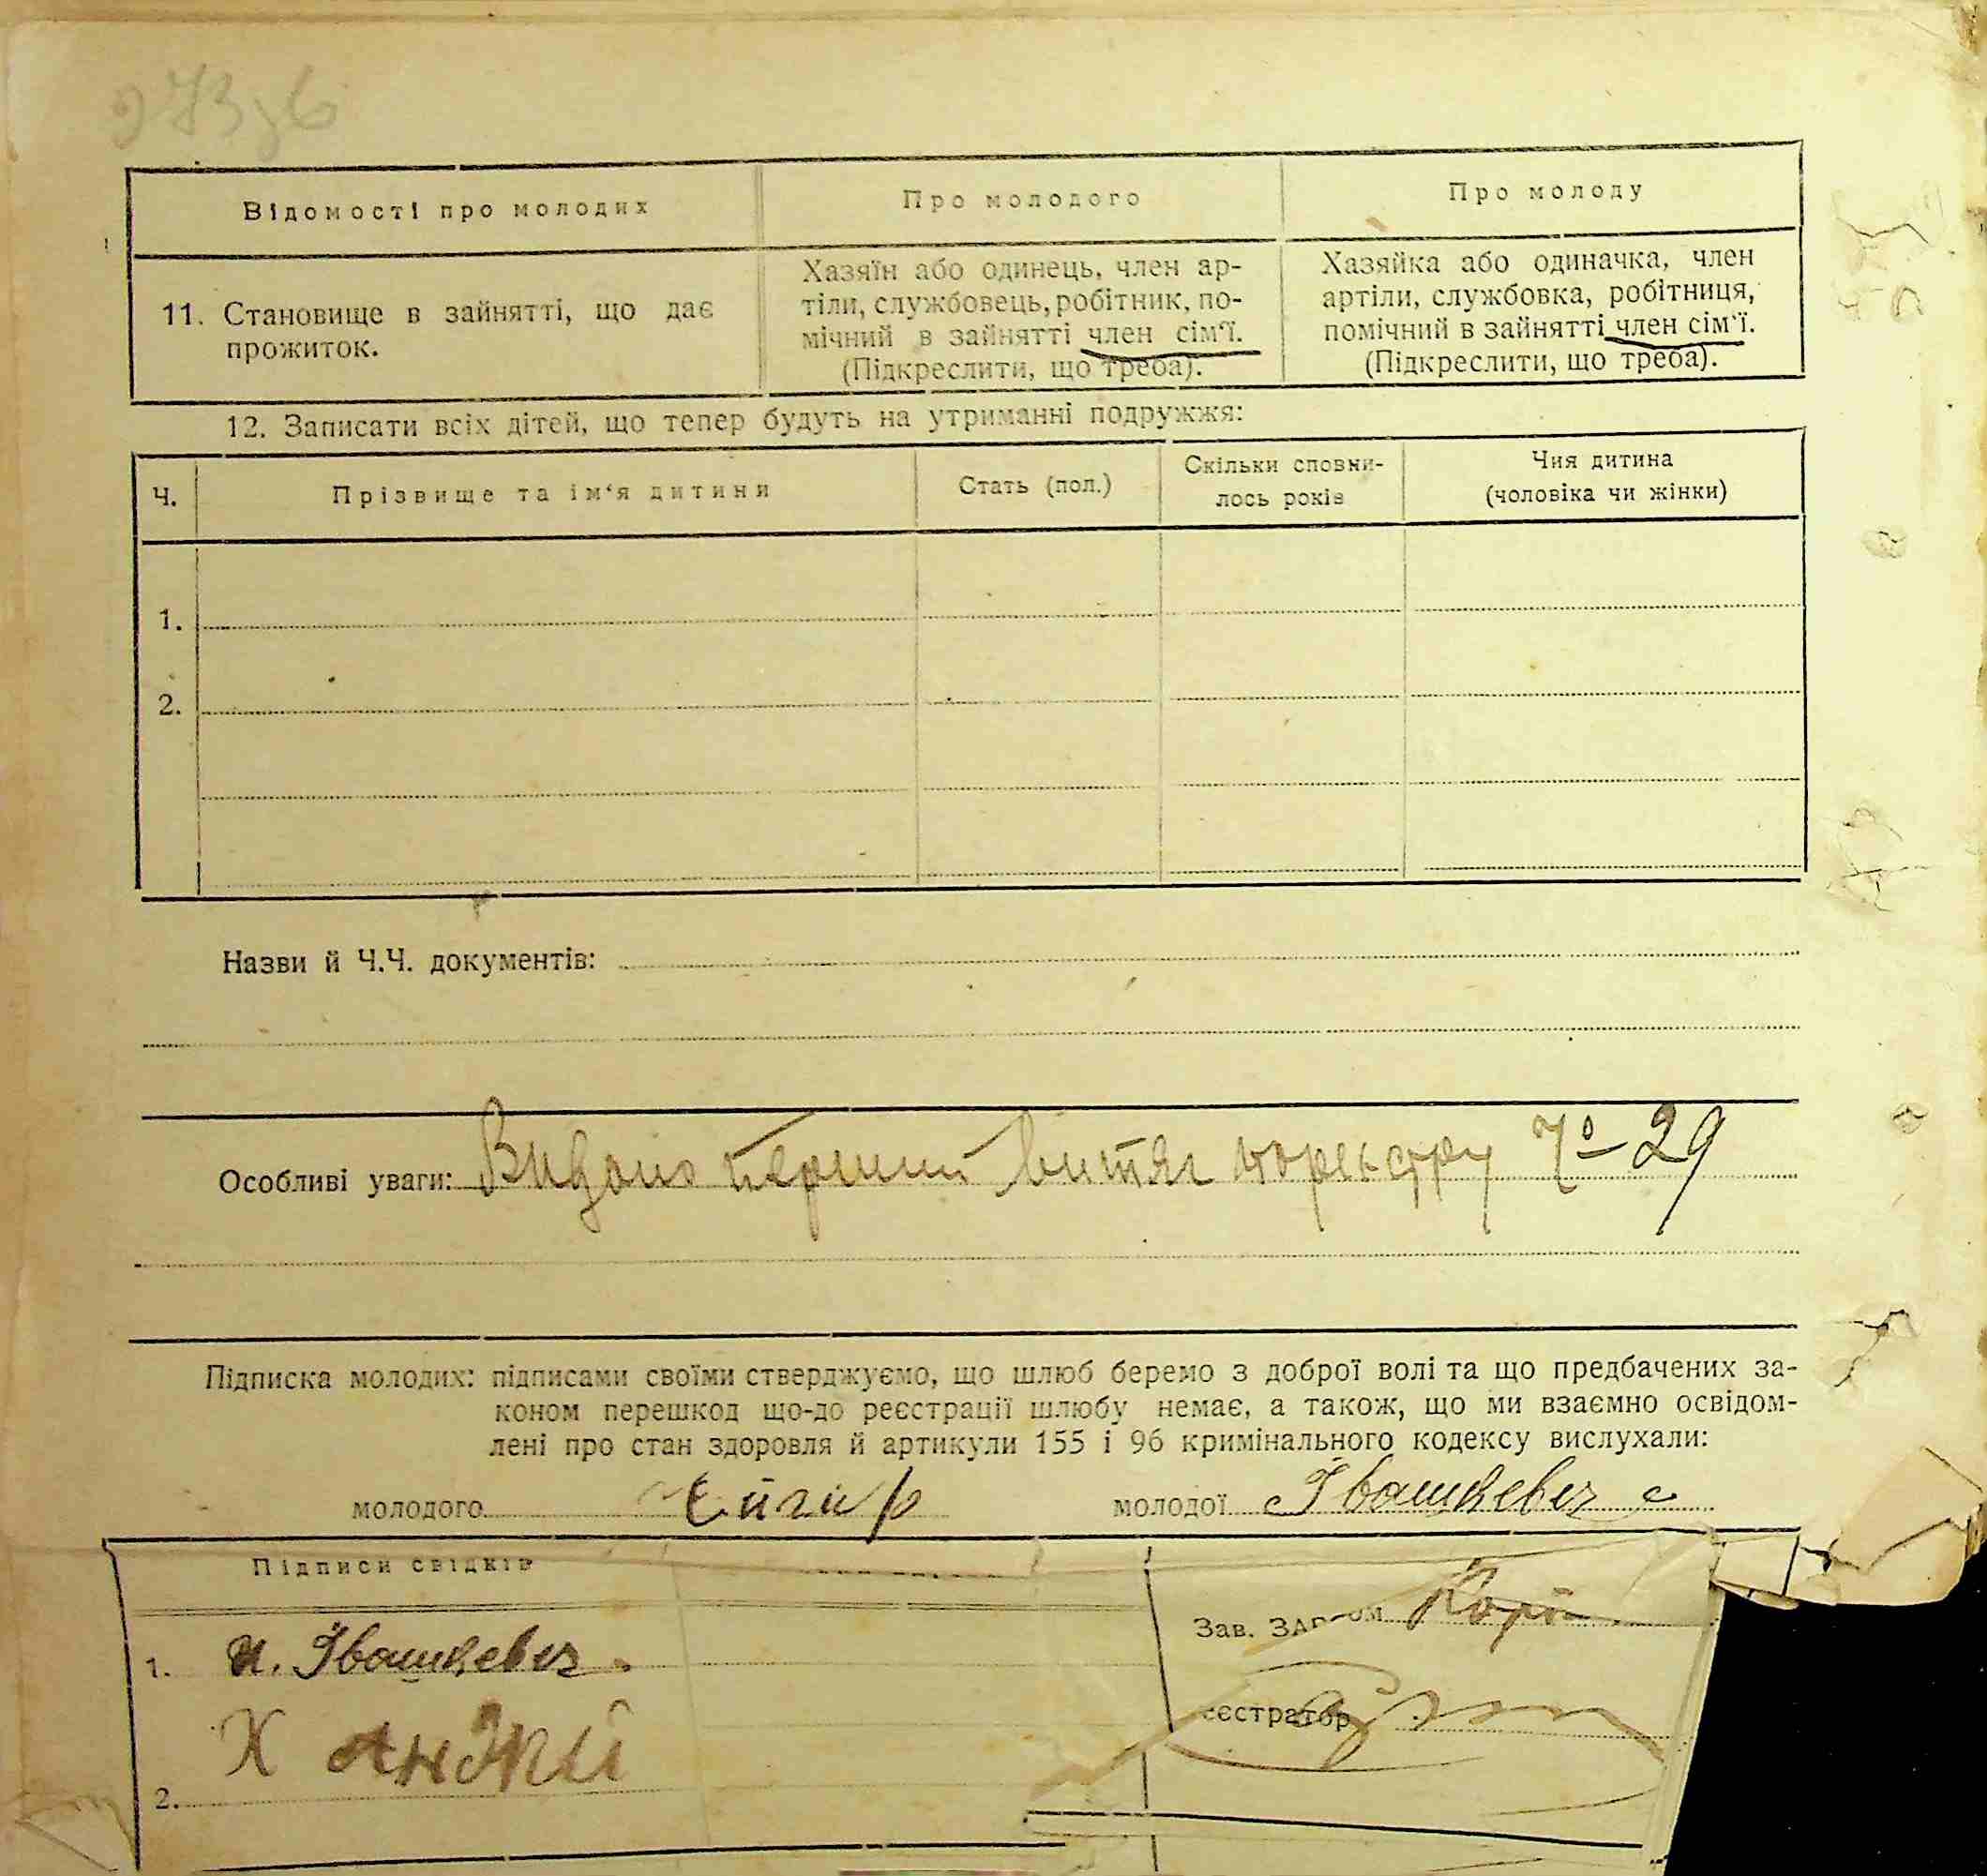 Відомості про молодих
Про молодого
Про молоду
11. Становище в зайнятті, що дає
прожиток.
Хазяїн або одинець, член ар-
тіли, службовець, робітник, по-
мічний в зайнятті член сім'ї.
(Підкреслити, що треба).
Хазяйка або одиначка, член
артіли, службовка, робітниця,
помічний в зайнятті член сім'ї.
(Підкреслити, що треба).
12. Записати всіх дітей, що тепер будуть на утриманні подружжя:
Ч.
Прізвище та ім'я дитини
Стать (пол.)
Скільки сповни-
лось років
Чия дитина
(чоловіка чи жінки)
1.
2.
Назви й Ч.Ч. документів:
Особливі уваги: Видано перший витяг 29
Підписка молодих: підписами своїми стверджуємо, що шлюб беремо з доброї волі та що предбачених за-
коном перешкод що-до реєстрації шлюбу немає, а також, що ми взаємно освідом-
лені про стан здоровля й артикули 155 і 96 кримінального кодексу вислухали:
молодого
молодої Івашкевич
Підписи свідків
1. И. Івашкевич
2.
Зав.